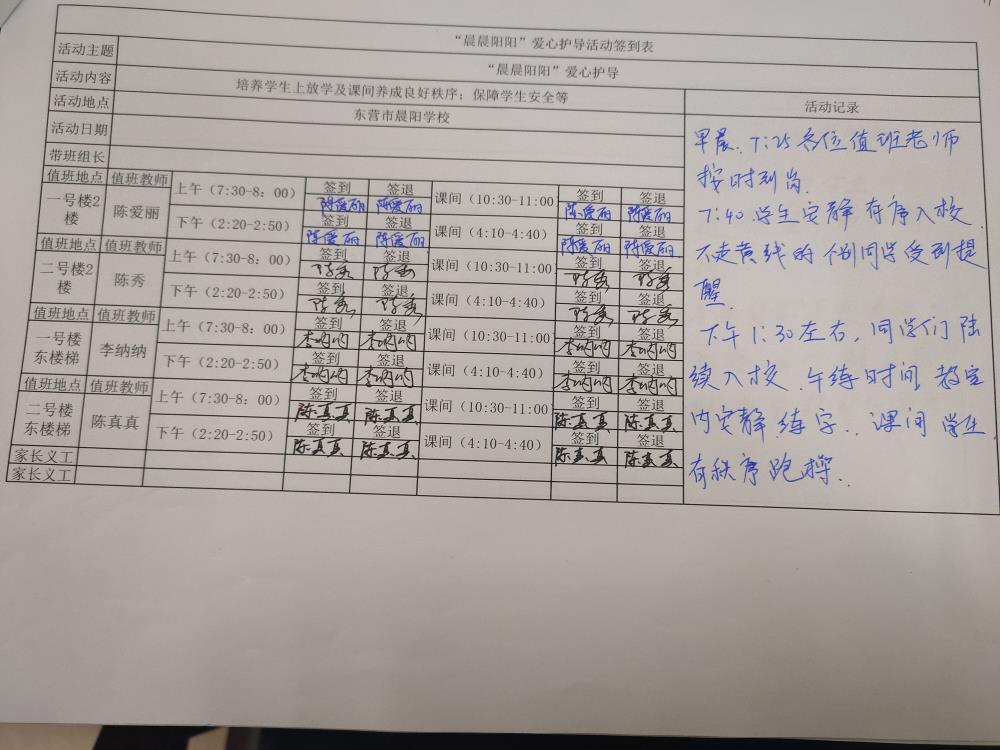 “晨晨阳阳”爱心护导活动签到表
活动主题 “晨晨阳阳”爱心护导
活动内容 培养学生上放学及课间养成良好秩序；保障学生安全等 活动记录
活动地点 东营市晨阳学校
活动日期
带班组长
值班地点 值班教师 上午（7:30-8：00） 签到 签退 课间（10:30-11:00 签到 签退
一号楼2楼 陈爱丽 陈爱丽 陈爱丽 陈爱丽 陈爱丽
下午（2:20-2:50） 签到 签退 课间（4:10-4:40） 签到 签退
陈爱丽 陈爱丽 陈爱丽 陈爱丽
值班地点 值班教师 上午（7:30-8：00） 签到 签退 课间（10:30-11:00 签到 签退
二号楼2楼 陈秀 陈秀 陈秀 陈秀 陈秀
下午（2:20-2:50） 签到 签退 课间（4:10-4:40） 签到 签退
陈秀 陈秀 陈秀 陈秀
值班地点 值班教师 上午（7:30-8：00） 签到 签退 课间（10:30-11:00 签到 签退
一号楼东楼梯 李纳纳 李纳纳 李纳纳 李纳纳 李纳纳
下午（2:20-2:50） 签到 签退 课间（4:10-4:40） 签到 签退
李纳纳 李纳纳 李纳纳 李纳纳
值班地点 值班教师 上午（7:30-8：00） 签到 签退 课间（10:30-11:00 签到 签退
二号楼东楼梯 陈真真 陈真真 陈真真 陈真真 陈真真
下午（2:20-2:50） 签到 签退 课间（4:10-4:40） 签到 签退
陈真真 陈真真 陈真真 陈真真
家长义工
家长义工
早晨、7:25各位值班老师
按时到岗.
7:40 学生安静有序入校
不走黄线的个别同学受到提
醒.
下午1:30左右，同学们陆
续入校.午练时间,教室
内安静练字..课间学生
有秩序跑操..